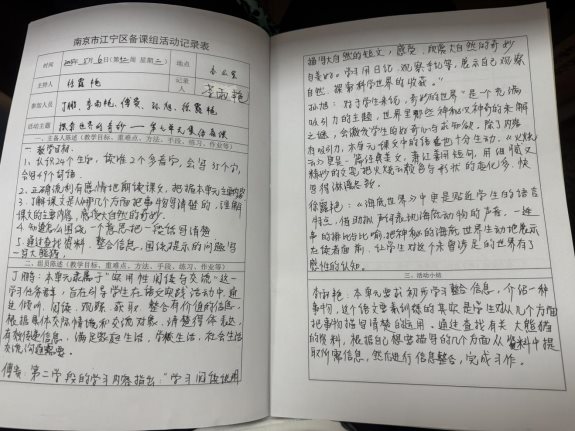 南京市江宁区备课组活动记录表
时间
地点
办公室
主持人
徐露艳
记录人
李雨艳
参加人员
丁鹏、李雨艳、傅蓉、孙旭、徐露艳
活动主题
探索世界的奇妙——第七单元集体备课
一、主备人陈述（教学目标、重难点、方法、手段、练习、作业等）
一、教学目标：
1、认识24个生字，读准2个多音字，会写35个字，
会写49个词语。
2、正确流利有感情地朗读课文，把握本单元主要内容
3、了解课文是从哪几个方面把事物写清楚的，理解
课文的主要内容，感受大自然的奇妙。
4、知道怎么围绕一个意思把一段话写清楚
5、通过查找资料，整合信息，围绕提示的问题写
一写大熊猫。
二、组员陈述（教学目标、重难点、方法、手段、练习、作业等）
丁鹏：本单元隶属于“实用性阅读与交流”这一
学习任务群，旨在引导学生在语文实践活动中，通
过倾听、阅读、观察，获取、整合有价值的信息，
根据具体交际情境和交流对象，清楚得体表达，
有效传递信息，满足家庭生活、学校生活、社会生活
交流沟通需要。
傅蓉：第二学段的学习内容指出：“学习阅读说明
描写大自然的短文，感受、欣赏大自然的奇妙
与美好。学习用日记、观察手记等，展示自己观察
自然、探索科学世界的收获。”
孙旭：对于学生来说，“奇妙的世界”是个充满
吸引力的主题，世界里那些神秘又神奇的未解
之谜，会激发学生的好奇心与求知欲。除了内容
有吸引力，本单元课文中的语言也十分生动。《火烧
云》更是一篇经典美文，萧红善用短句，用细腻又
精妙的文笔把火烧云颜色与形状的变化多、快
写得淋漓尽致。
徐露艳：《海底世界》中更是贴近学生的语言
特点，借助拟声词表现海底动物的声音，一连
串的排比与比喻，把神秘的海底世界生动地展示
在读者面前，让学生对这个未曾涉足的世界有了
感性的认知。
三、活动小结
李雨艳：本单元要求初步学习整合信息，介绍一种
事物，这个语文要素训练的其实是学生对从几个方面
把事物描写清楚的运用。通过查找有关大熊猫
的资料，根据自己想要描写的几个方面从资料中提
取所需信息，然后进行信息整合，完成习作。